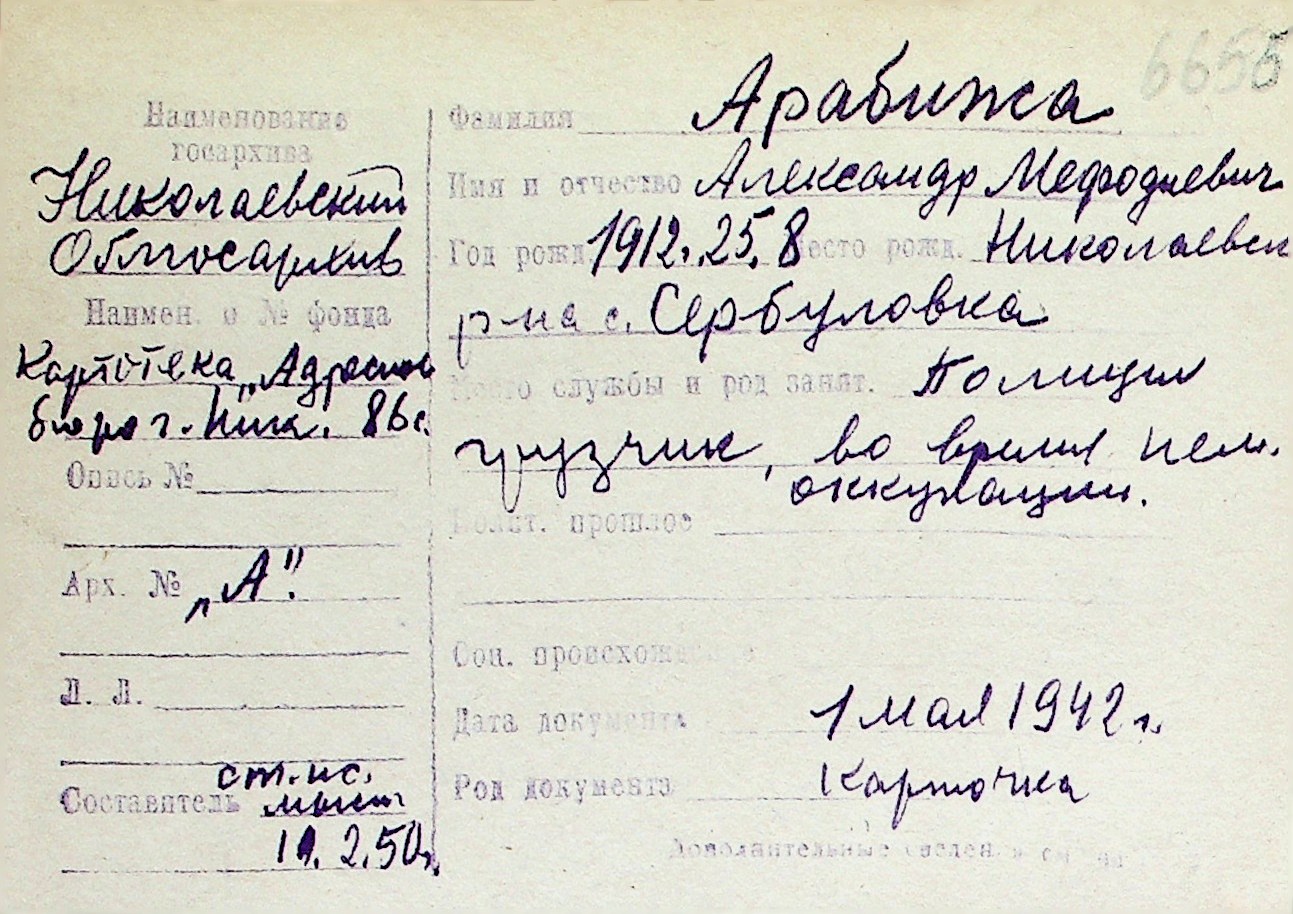 6655
Наименование
госархива
Николаевский
Облгосархив
Наимен. и № фонда
Картотека „Адресное
бюро г. Ник. 86с.
Опись №
Арх. № „А".
Л. Л.
ст. ис.
Составитель
2.50г.
Фамилия Арабижа
Имя и отчество Александр Мефодиевич
Год рожд. 1912. 25. 8 Место рожд. Николаевск
р-на с. Сербуловка
Место службы и род занят. Полиция
грузчик, во время нем.
оккупации.
Полит. прошлое
Соц. происхождение
Дата документа 1 мая 1942 г.
Род документа Карточка
Дополнительные сведения см. на